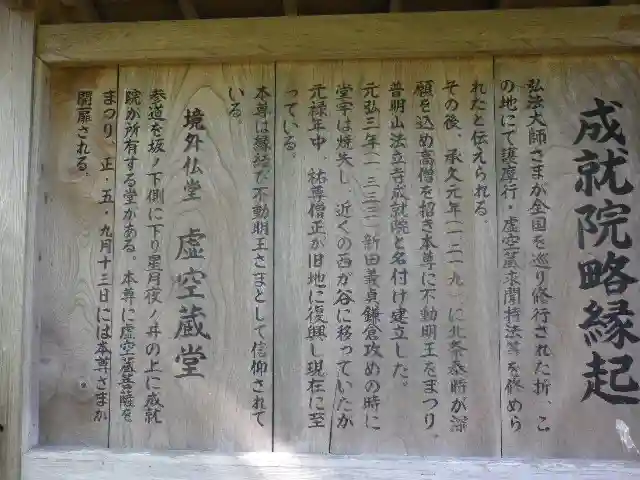 成就院略縁起
弘法大師さまが全国を巡り修行された折、こ
の地にて護摩行・虚空蔵求聞持法等を修めら
れたと伝えられる。
その後、承久元年(一二一九)に北条泰時が深
願を込め高僧を招き本尊に不動明王をまつり、
普明山法立寺成就院と名付け建立した。
元弘三年(一三三三)新田義貞鎌倉攻めの時に
堂宇は焼失し、近くの西が谷に移っていたが
元禄年中、祐尊僧正が旧地に復興し現在に至
っている。
本尊は縁結び不動明王さまとして信仰されて
いる。
境外仏堂 虚空蔵堂
参道を坂ノ下側に下り星月夜ノ井の上に成就
院が所有する堂がある。本尊に虚空蔵菩薩を
まつり、正・五・九月十三日には本尊さまが
開扉される。